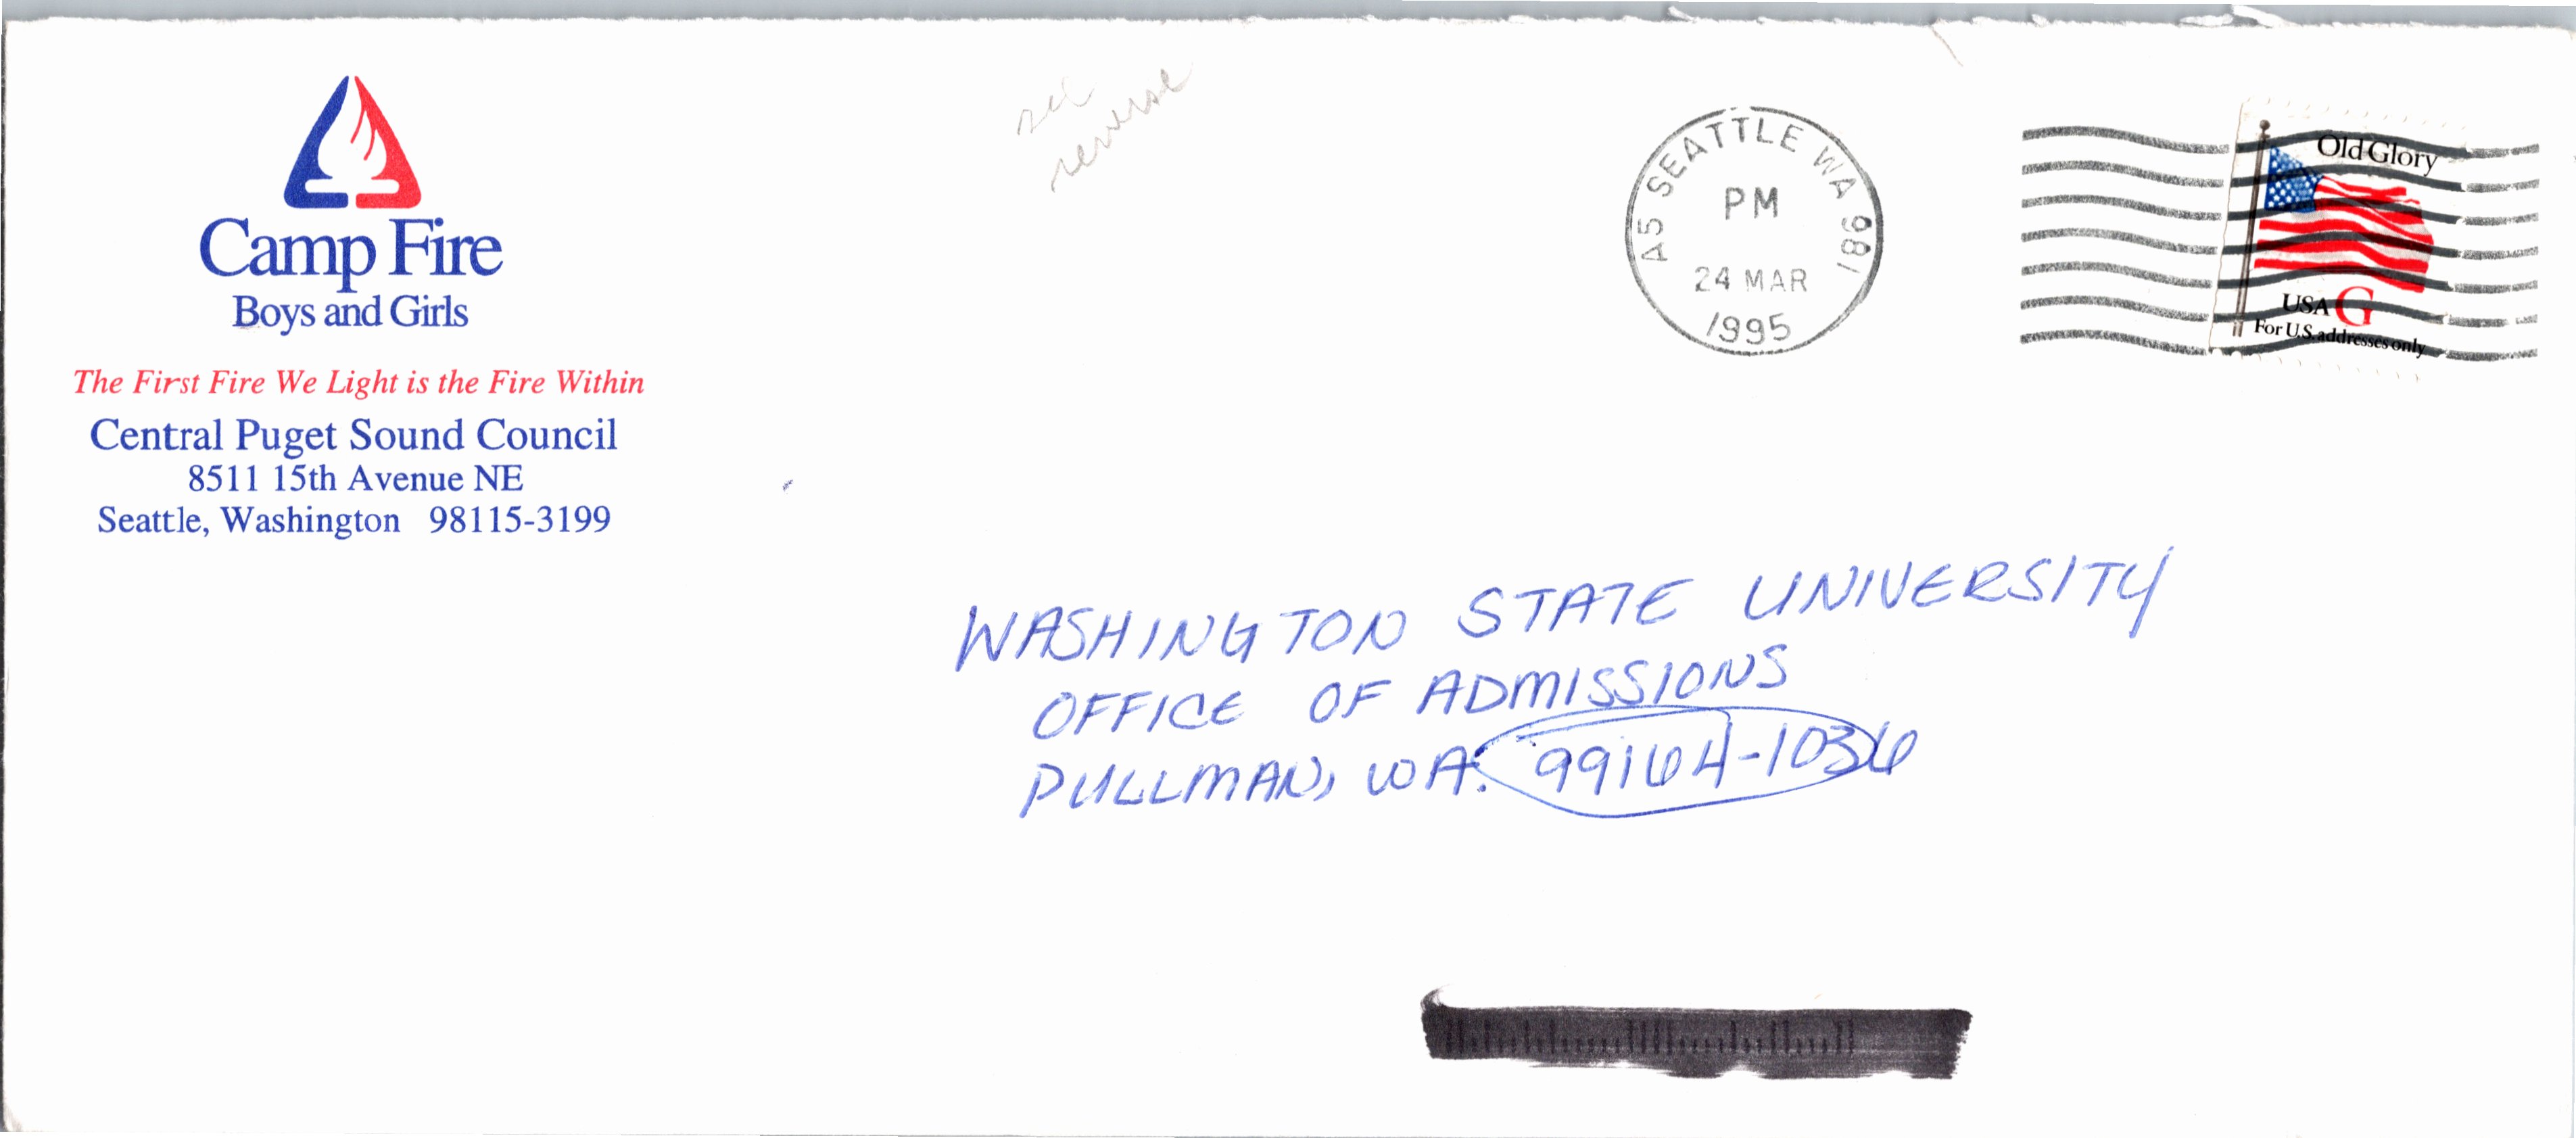 Camp Fire
Boys and Girls
The First Fire We Light is the Fire Within
Central Puget Sound Council
8511 15th Avenue NE
Seattle, Washington 98115-3199
see
reverse
A5 SEATTLE WA 981
PM
24 MAR
1995
Old Glory
USA G
For U.S. addresses only
WASHINGTON STATE UNIVERSITY
OFFICE OF ADMISSIONS
PULLMAN, WA. 99164-1036